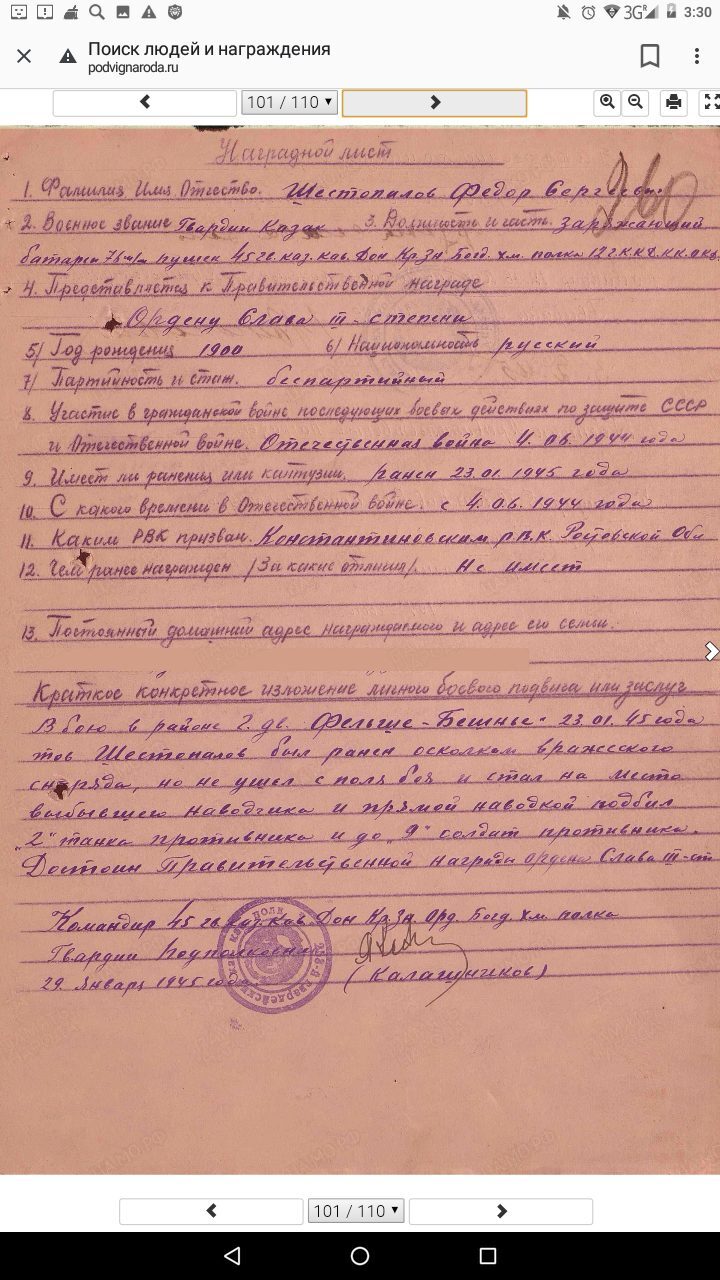 3G R 3:30
Поиск людей и награждения
podvignaroda.ru
101 / 110
Наградной лист
1. Фамилия Имя Отчество. Шестопалов Федор Сергеевич
2. Военное звание Гвардии Казак 3. Должность и часть Заряжающий
батареи 76 м/м пушек 45 гв. каз. кав. Дон Кр.Зн Богд. хм. полка 12 г.К.К.Д.
4. Представляется к Правительственной награде
Ордену Слава III - степени
5/ Год рождения 1900 6/ Национальность русский
7/ Партийность и стаж. беспартийный
8. Участие в гражданской войне последующих боевых действиях по защите СССР
и Отечественной войне. Отечественная война 4.06.1944 года
9. Имеет ли ранения или контузии. ранен 23.01.1945 года
10. С какого времени в Отечественной войне. с 4.06.1944 года
11. Каким РВК призван. Константиновским р.в.к. Ростовской Обл
12. Чем ранее награжден /За какие отличия/. Не имеет
13. Постоянный домашний адрес награждаемого и адрес его семьи.
Краткое конкретное изложение личного боевого подвига или заслуг
В бою в районе г. дв. Фельше-Бешнье 23.01.45 года
тов Шестопалов был ранен осколком вражеского
снаряда, но не ушел с поля боя и стал на место
выбывшего наводчика и прямой наводкой подбил
„2" танка противника и до „9" солдат противника.
Достоин Правительственной награды ордена Слава III-ст
Командир 45 гв. каз. кав. Дон Кр.Зн Орд. Богд. хм. полка
Гвардии Подполковник
29. Января 1945 года. (Калашников)
101 / 110